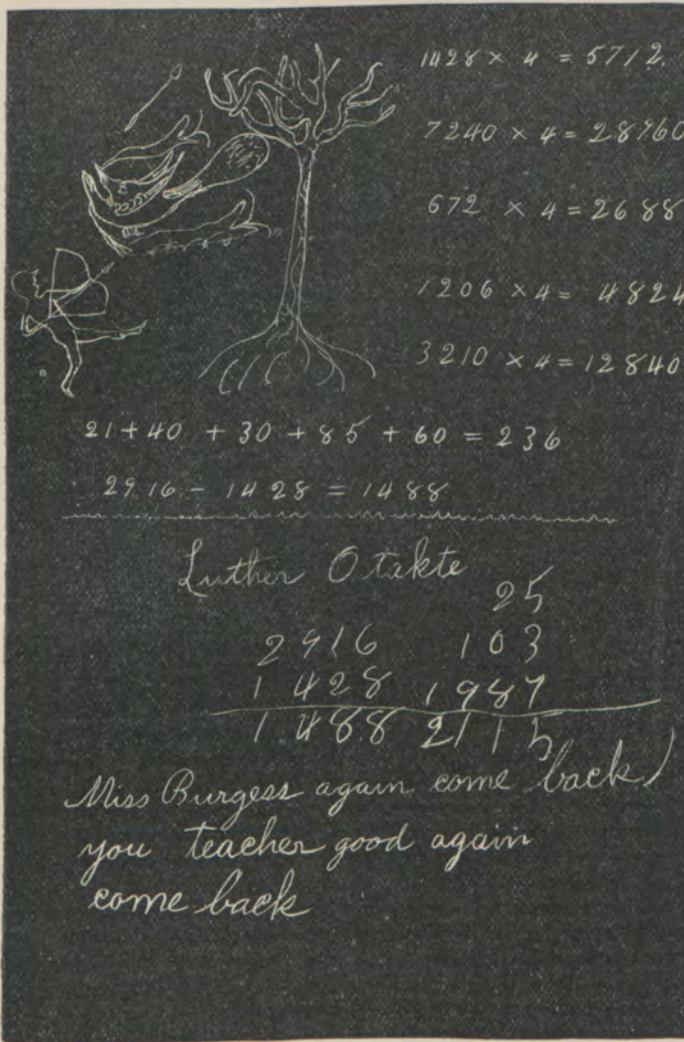 1428 × 4 = 5712.
7240 × 4 = 28960
672 × 4 = 2688
1206 × 4 = 4824
3210 × 4 = 12840
21 + 40 + 30 + 85 + 60 = 236
2916 - 1428 = 1488
Luther Otakte
25
2916 103
1428 1987
1488 2115
Miss Burgess again come back)
you teacher good again
come back